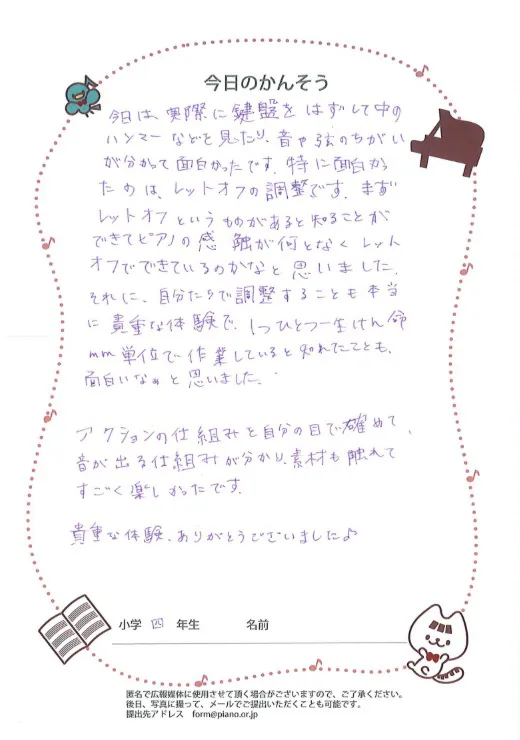 今日のかんそう
今日は実際に鍵盤をはずして中の
ハンマーなどを見たり、音や弦のちがい
が分かって面白かったです。特に面白かっ
たのは、レットオフの調整です。まず
レットオフというものがあると知ることが
できてピアノの感触が何となくレット
オフでできているのかなと思いました。
それに、自分たちで調整することも本当
に貴重な体験で、1つひとつ一生けん命
mm単位で作業していると知れたことも、
面白いなぁと思いました。
アクションの仕組みを自分の目で確めて、
音が出る仕組みが分かり、素材も触れて
すごく楽しかったです。
貴重な体験、ありがとうございました♪
小学 四 年生 名前
匿名で広報媒体に使用させて頂く場合がございますので、ご了承ください。
後日、写真に撮って、メールでご提出いただくことも可能です。
提出先アドレス form@piano.or.jp